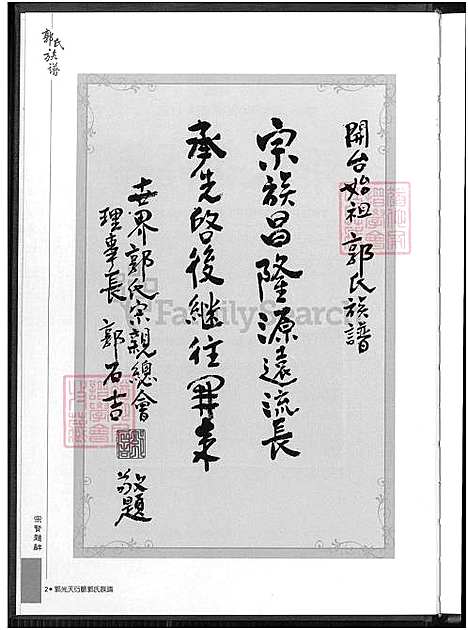 郭氏族譜
開台始祖郭氏族譜
宗族昌隆源遠流長
承先啓後継往開来
世界郭氏宗親總會
理事長 郭石吉
敬題
FamilySearch
宗賢題辭
2•郭光天衍脈郭氏族譜